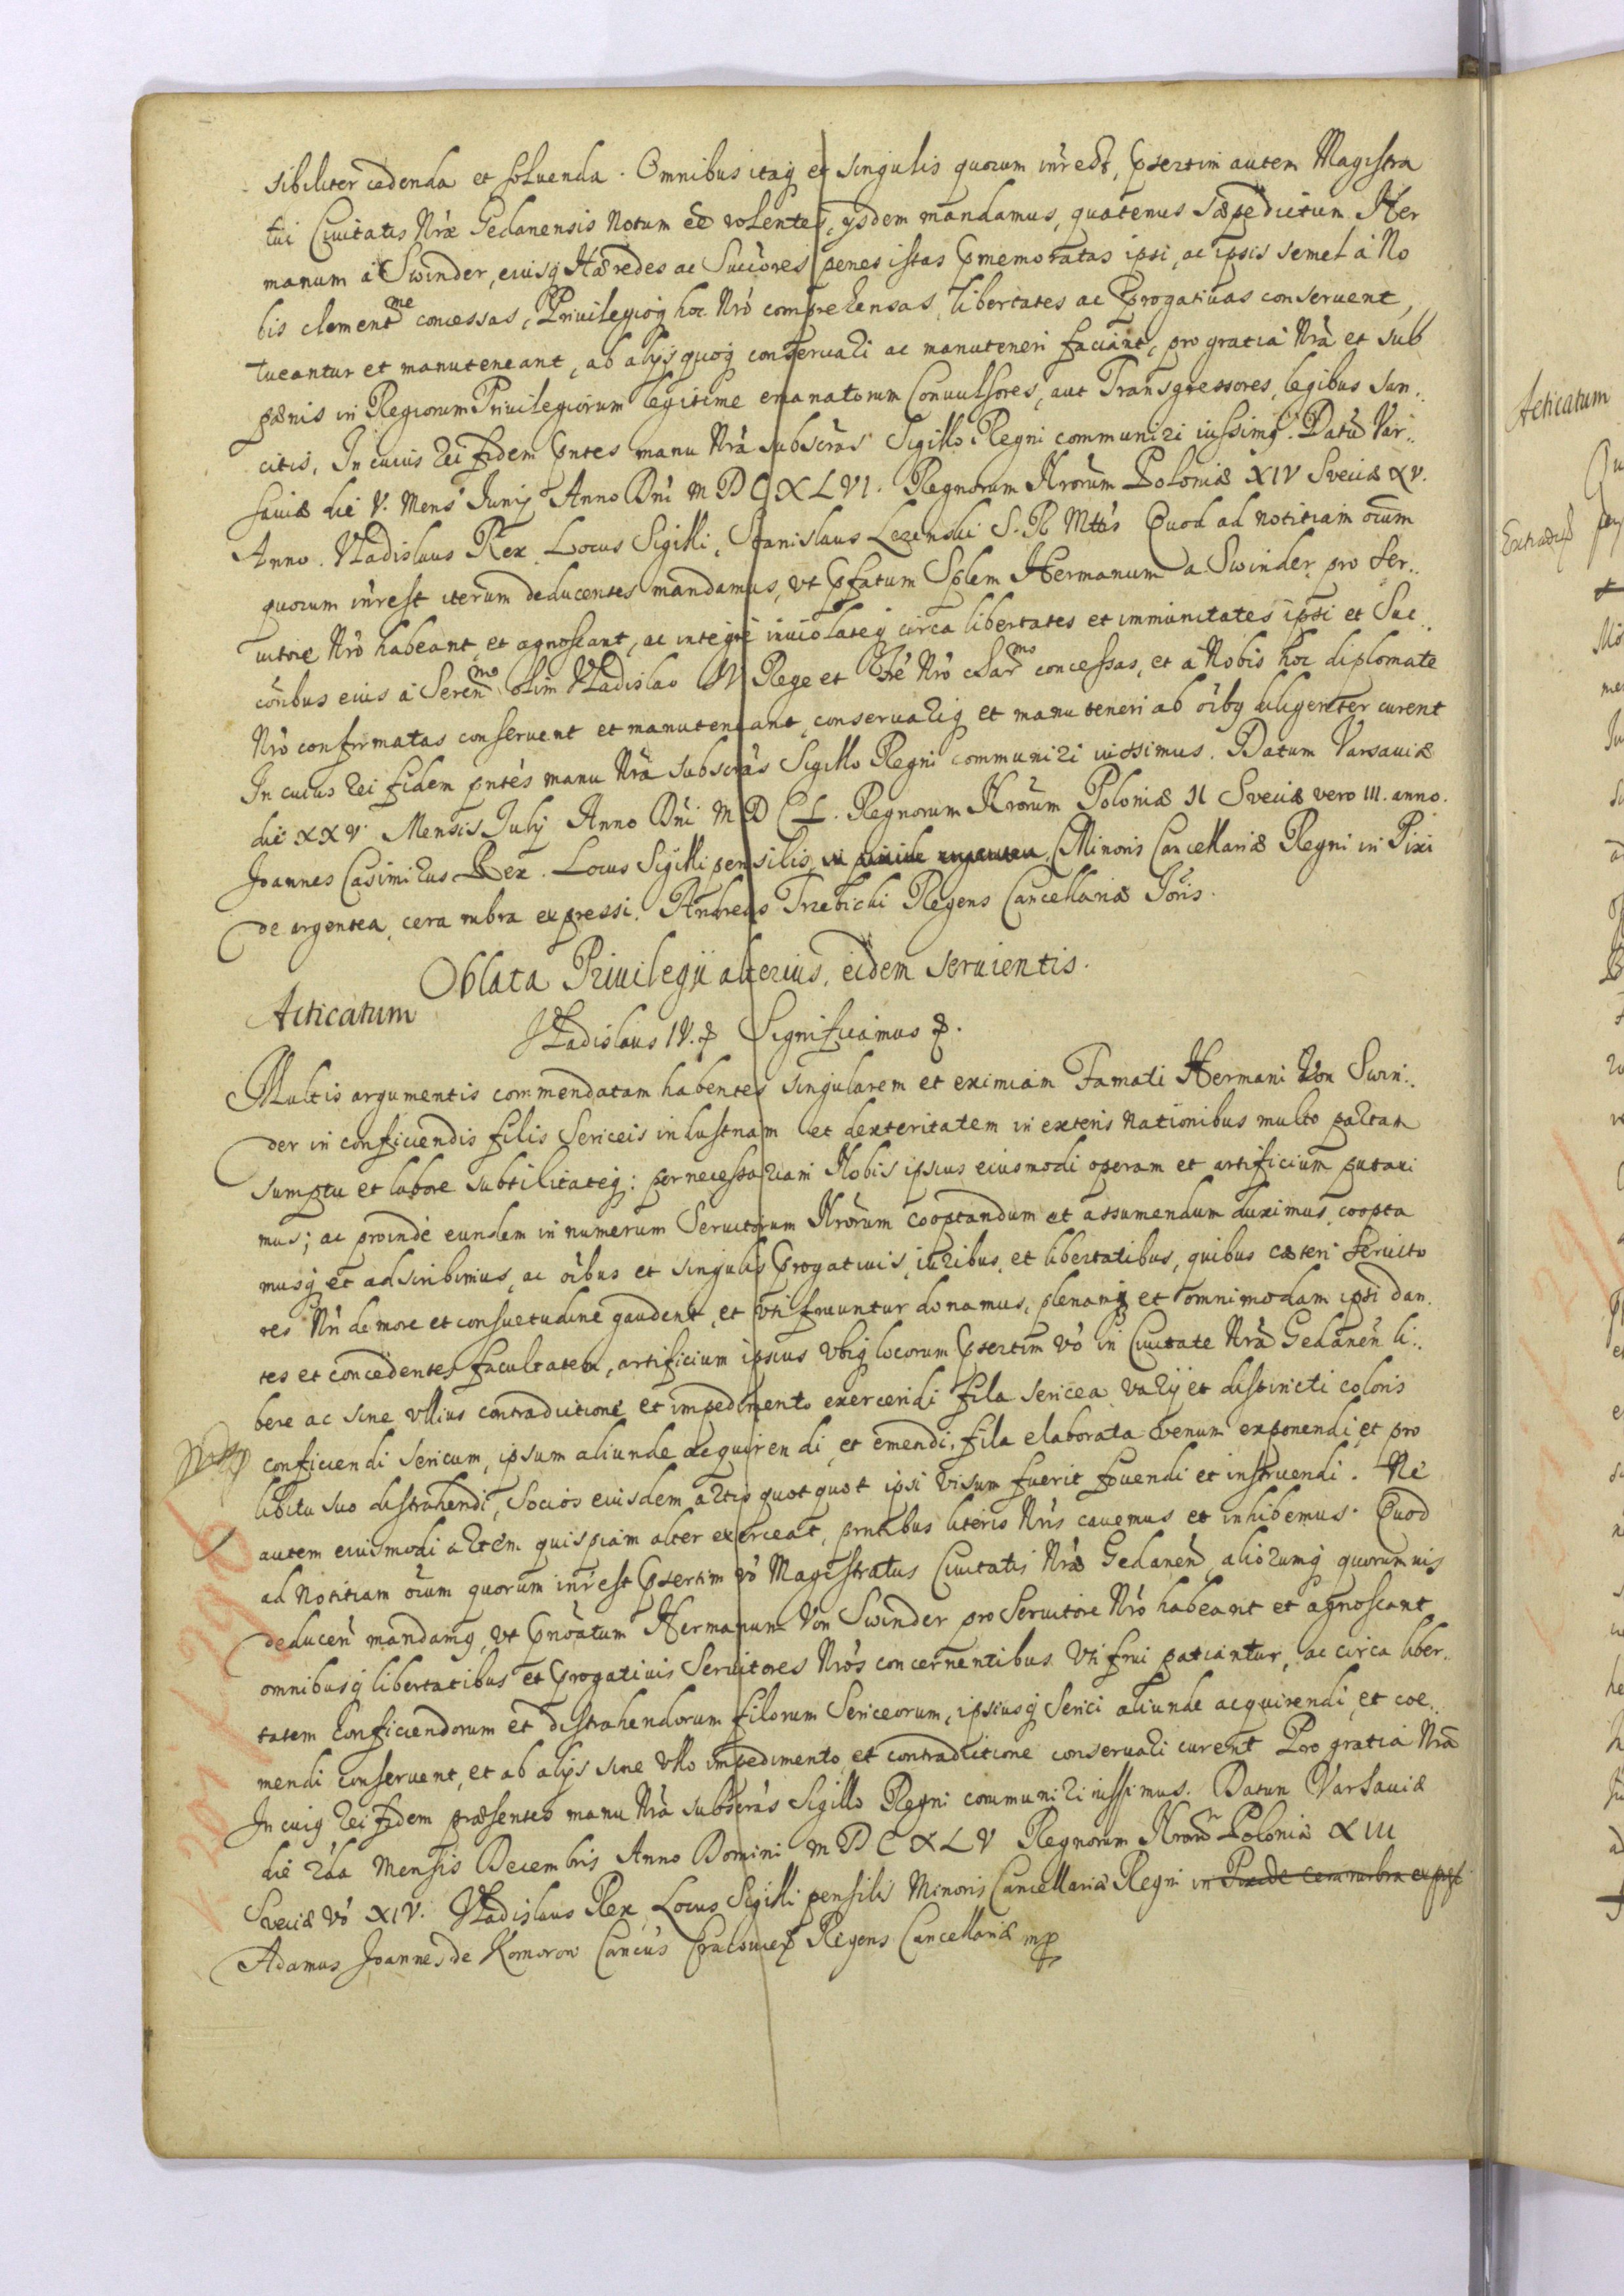 sibiliter cedenda et soluenda. Omnibus itaq et singulis quorum inrest, Psertim autem Magistra
tui Ciuitatis Nræ Gedanensis Notum ee volentes, ysdem mandamus, quatenus sæpedictum Her
manum á Swinder, eiusq Hæredes ac Succōres penes istas Pmemoratas ipsi, ac ipsis semel á No
bis clementme concessas, Priuilegioq hoc Nrò comprehensas, libertates ac Progatiuas conseruent,
tueantur et manuteneant, ab alys quoq conseruari ac manuteneri faciant, pro gratiâ Nrâ et sub
pænis in Regiorum Priuilegiorum legitime emanatorum Conuulsores, aut Transgressores, legibus san..
citis. In cuius rei fidem Pntes manu Nrâ subscras Sigillo Regni communiri iussimq. Datū Var..
sauiæ die V. Mens Juny Anno Dni MDCXLVI. Regnorum Nrorum Poloniæ XIV Sveciæ XV.
Anno. Vladislaus Rex. Locus Sigilli, Stanislaus Lezenski S. R Mttis Quod ad notitiam oium
quorum inrest iterum deducentes mandamus, vt Pfatum Splem Hermanum a Swinder pro Ser..
uitore Nrò habeant et agnoscant, ac integre inuiolateq circa libertates et immunitates ipsi et Suc..
cōribus eius á Serenmo olim Vladislao IV Rege et Fre Nrò charmo concessas, et á Nobis hoc diplomate
Nrò confirmatas conseruent et manuteneant, conseruariq et manuteneri ab oibq diligenter curent
In cuius rei fidem pntes manu Nrâ subscras Sigillo Regni communiri iussimus. Datum Varsauiæ
die XXV Mensis July Anno Dni MDCL. Regnorum Nrorum Poloniæ II Sveciæ vero III. anno.
Joannes Casimirus Rex. Locus Sigilli pensilis Minoris Cancellariæ Regni in Pixi
de argentea, cera rubra expressi. Andreas Trzebicki Regens Cancellariæ Joris.
Oblata Priuilegii alterius, eidem seruientis.
Acticatum
Vladislaus IV. Significamus
Multis argumentis commendatam habentes singularem et eximiam Famati Hermani Von Swin..
der in conficiendis filis Sericeis industriam et dexteritatem in exteris nationibus multo partam
sumptu et labore subtilitateq: pernecessariam Nobis ipsius eiusmodi operam et artificium putaui
mus; ac proinde eundem in numerum Seruitorum Nrorum cooptandum et assumendum duximus, coopta
musq et adscribimus, ac oibus et singulis Progatiuis, iuribus et libertatibus, quibus cæteri Seruito
res Nri de more et consuetudine gaudent, et vti fruuntur donamus, plenamq et omnimodam ipsi dan
tes et concedentes facultatem, artificium ipsius vbiq locorum Psertim vò in Ciuitate Nrâ Gedanen li..
bere ac sine vllius contradictione et impedimento exercendi fila sericea varij et distincti coloris
conficiendi sericum, ipsum aliunde acquirendi, et emendi, fila elaborata venum exponendi, et pro
libitu suo distrahendi, Socios eiusdem artis quotquot ipsi visum fuerit fouendi et instruendi. Ne
autem eiusmodi artem quispiam alter exerceat, pntibus literis Nris cauemus et inhibemus. Quod
ad notitiam oium quorum inrest Psertim vò Magistratus Ciuitatis Nræ Gedanen, aliorumq quorumuis
deducen mandamq, vt Pnoatum Hermanum Von Swinder pro Seruitore Nrò habeant et agnoscant
omnibusq libertatibus et Progatiuis Seruitores Nros concernentibus vti frui patiantur, ac circa liber..
tatem conficiendorum et distrahendorum filorum Sericeorum, ipsiusq Serici aliunde acquirendi, et coe..
mendi conseruent, et ab alys sine vllo impedimento et contradictione conseruari curent Pro gratia Nrâ
In cuiq rei fidem præsentes manu Nrâ subscras Sigillo Regni communiri iussimus. Datum Varsauiæ
die 2da Mensis Decembris Anno Domini MDCXLV Regnorum Nrorum Poloniæ XIII
Sveciæ vò XIV. Vladislaus Rex, Locus Sigilli pensilis Minoris Cancellariæ Regni in Pixide cera rubra
Adamus Joannes de Komorow Cancus Cracouien Regens Cancellariæ mp
Acticatum